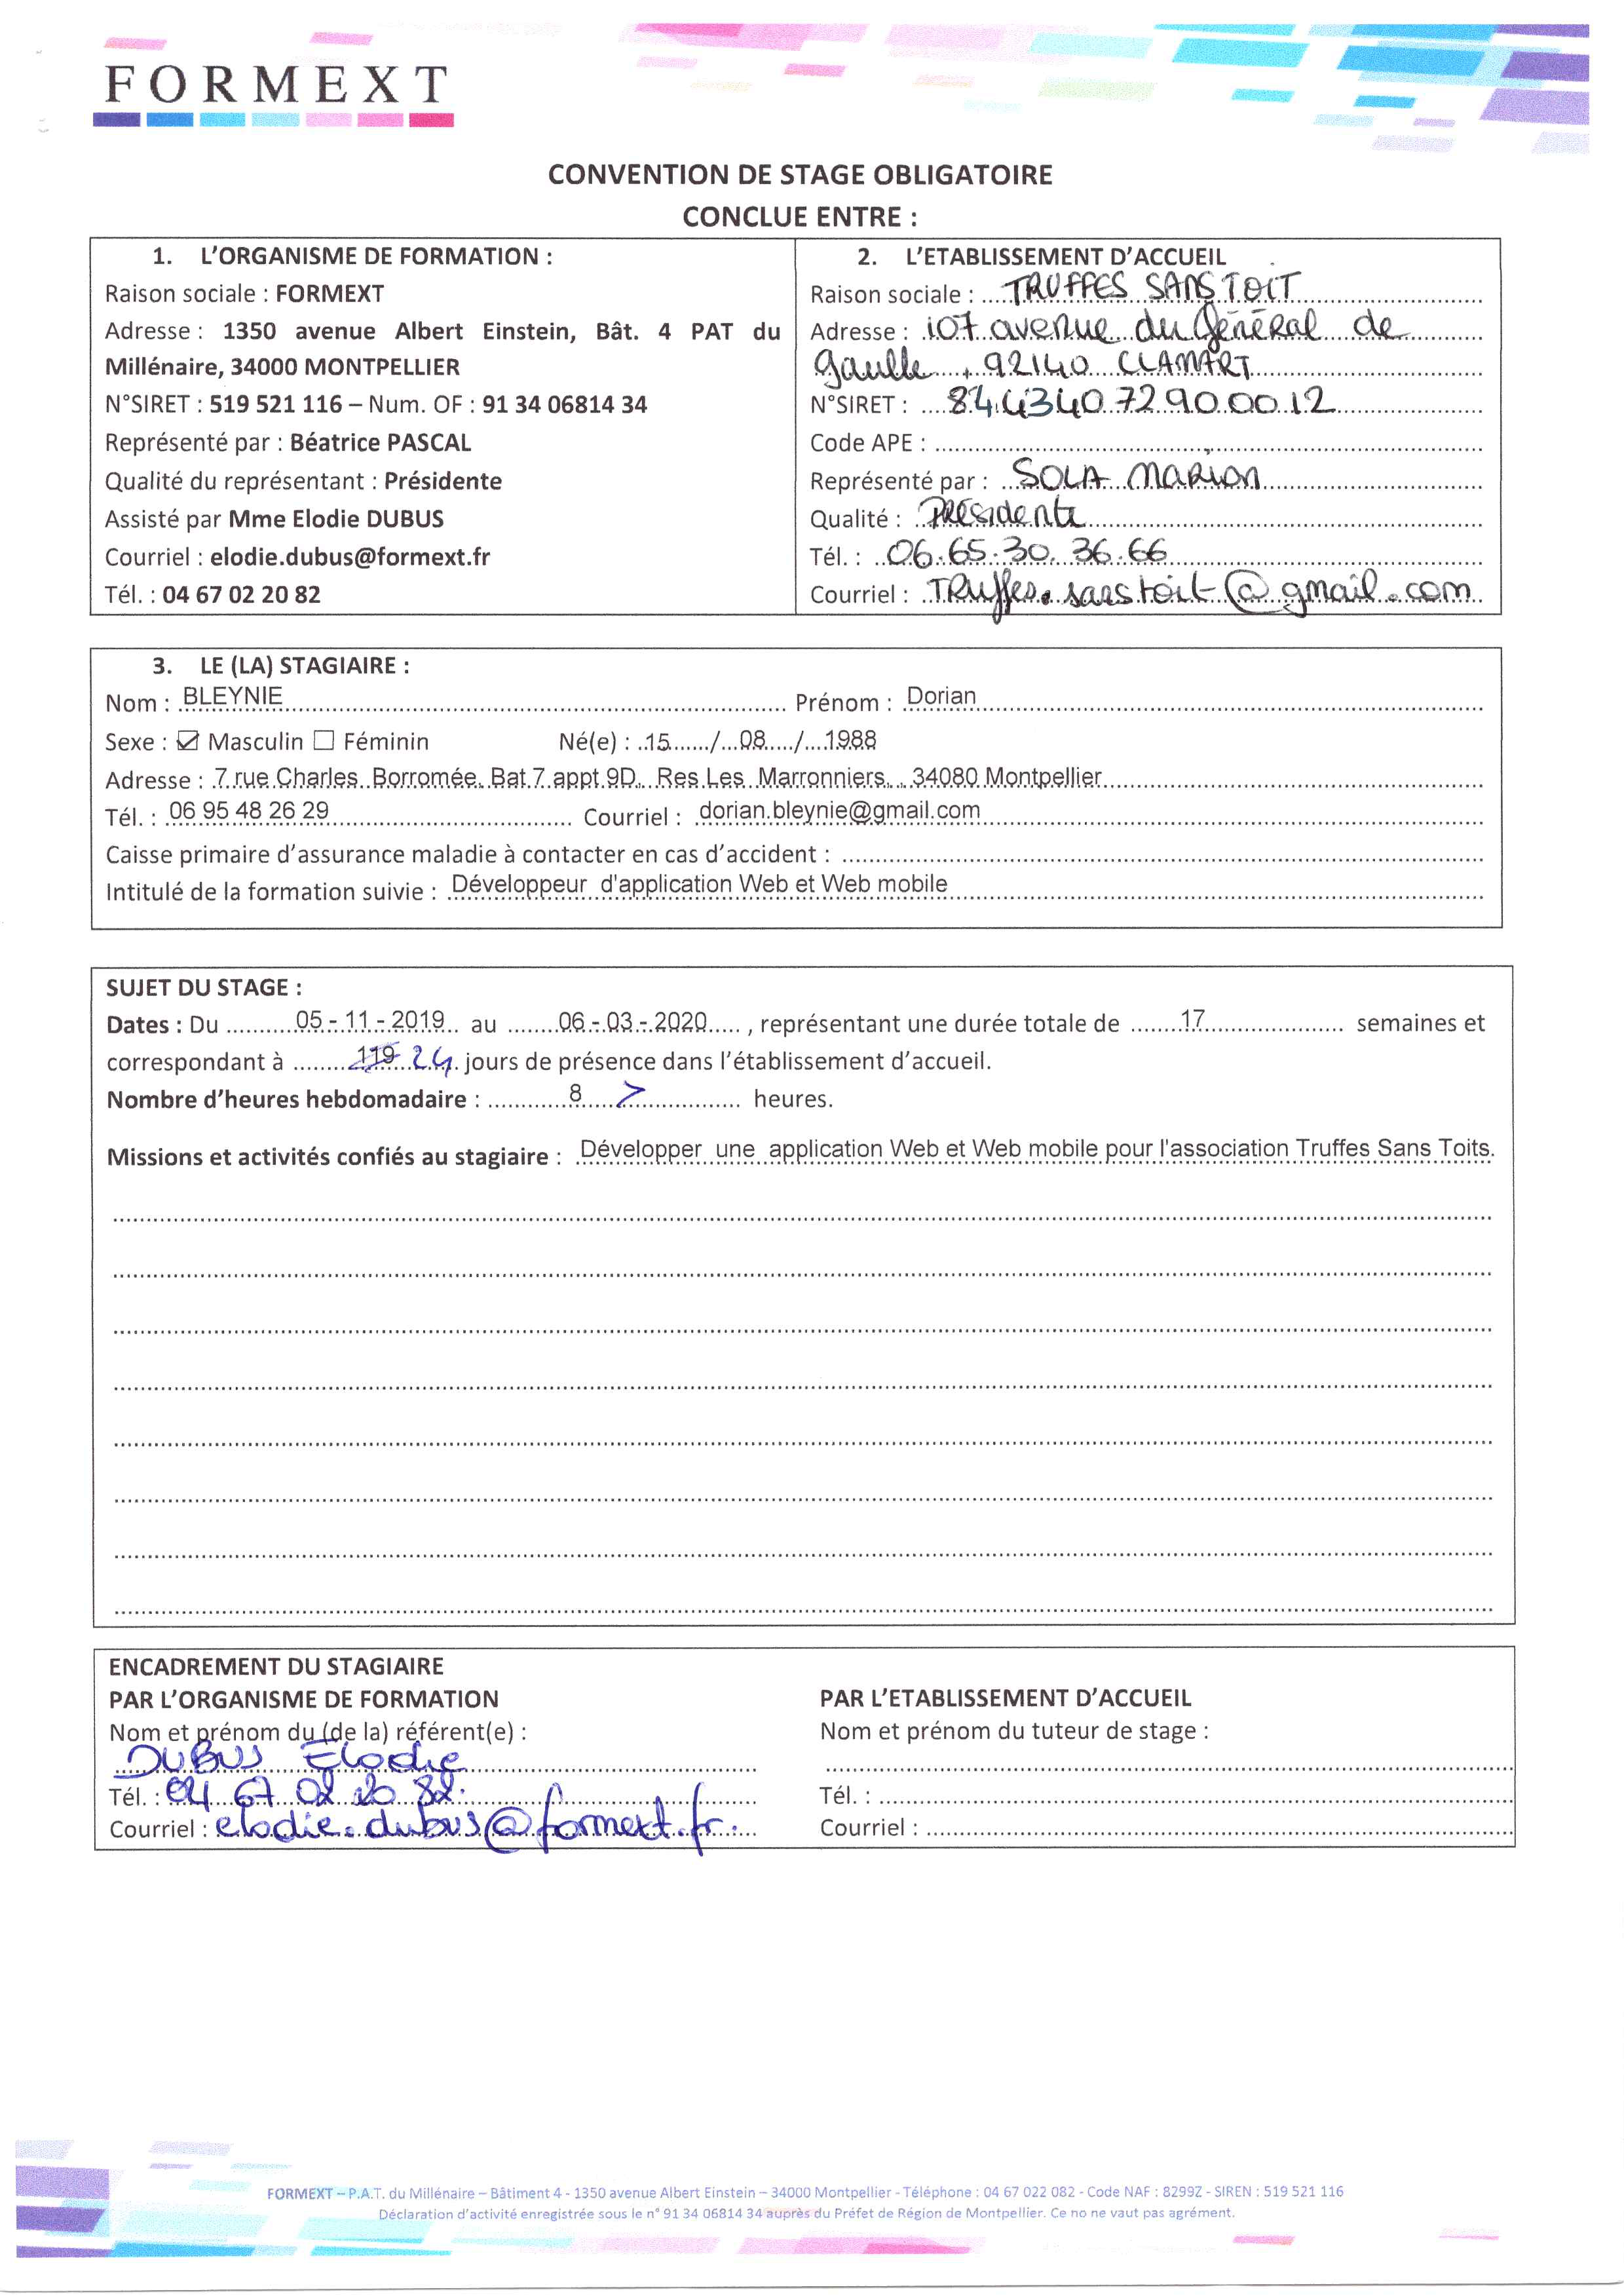 FORMEXT
CONVENTION DE STAGE OBLIGATOIRE
CONCLUE ENTRE :
1. L'ORGANISME DE FORMATION :
Raison sociale : FORMEXT
Adresse : 1350 avenue Albert Einstein, Bât. 4 PAT du
Millénaire, 34000 MONTPELLIER
N°SIRET : 519 521 116 – Num. OF : 91 34 06814 34
Représenté par : Béatrice PASCAL
Qualité du représentant : Présidente
Assisté par Mme Elodie DUBUS
Courriel : elodie.dubus@formext.fr
Tél. : 04 67 02 20 82
2. L'ETABLISSEMENT D'ACCUEIL
Raison sociale : TRUFFES SANS TOIT
Adresse : 107 avenue du Général de
gaulle , 92140 CLAMART
N°SIRET : 84434072900012
Code APE :
Représenté par : SOLA Marion
Qualité : Présidente
Tél. : 06.65.30.36.66
Courriel : Truffes.sanstoit@gmail.com
3. LE (LA) STAGIAIRE :
Nom : BLEYNIE Prénom : Dorian
Sexe : ☑ Masculin ☐ Féminin Né(e) : 15 / 08 / 1988
Adresse : 7 rue Charles Borromée. Bat 7 appt 9D, Res Les Marronniers, 34080 Montpellier
Tél. : 06 95 48 26 29 Courriel : dorian.bleynie@gmail.com
Caisse primaire d'assurance maladie à contacter en cas d'accident :
Intitulé de la formation suivie : Développeur d'application Web et Web mobile
SUJET DU STAGE :
Dates : Du 05 - 11 - 2019 au 06 - 03 - 2020 , représentant une durée totale de 17 semaines et
correspondant à 119 24 jours de présence dans l'établissement d'accueil.
Nombre d'heures hebdomadaire : 8 heures.
Missions et activités confiés au stagiaire : Développer une application Web et Web mobile pour l'association Truffes Sans Toits.
ENCADREMENT DU STAGIAIRE
PAR L'ORGANISME DE FORMATION
Nom et prénom du (de la) référent(e) :
DUBUS Elodie
Tél. : 04 67 02 20 82.
Courriel : elodie.dubus@formext.fr.
PAR L'ETABLISSEMENT D'ACCUEIL
Nom et prénom du tuteur de stage :
Tél. :
Courriel :
FORMEXT – P.A.T. du Millénaire – Bâtiment 4 - 1350 avenue Albert Einstein – 34000 Montpellier - Téléphone : 04 67 022 082 - Code NAF : 8299Z - SIREN : 519 521 116
Déclaration d'activité enregistrée sous le n° 91 34 06814 34 auprès du Préfet de Région de Montpellier. Ce no ne vaut pas agrément.